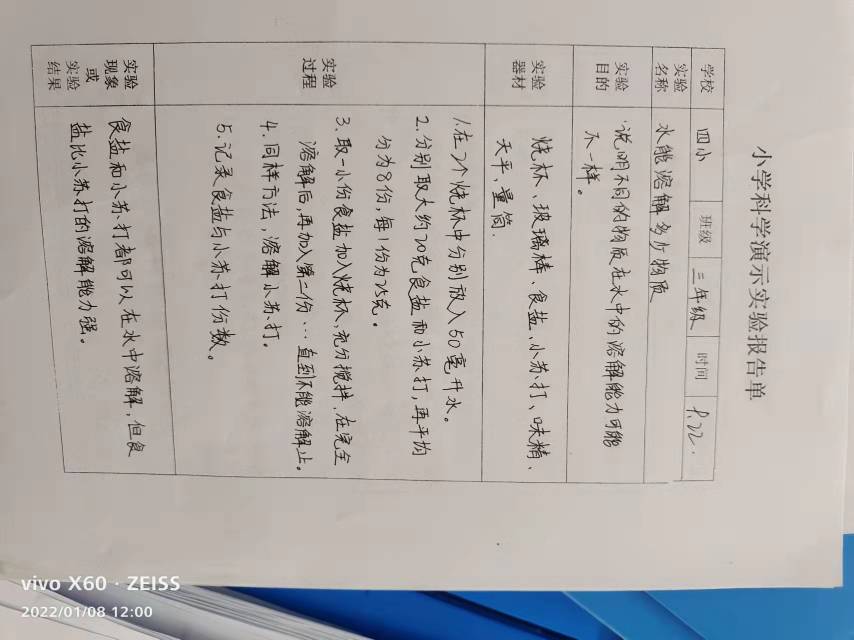 小学科学演示实验报告单
学校 四小 班级 三年级 时间 9.22.
实验名称 水能溶解多少物质
实验目的 说明不同的物质在水中的溶解能力可能
不一样。
实验器材 烧杯、玻璃棒、食盐、小苏打、味精、
天平、量筒.
实验过程 1.在2个烧杯中分别放入50毫升水。
2.分别取大约20克食盐和小苏打,再平均
分为8份,每1份为2.5克。
3.取一小份食盐加入烧杯,充分搅拌,在完全
溶解后,再加入第二份…直到不能溶解止。
4.同样方法,溶解小苏打。
5.记录食盐与小苏打份数。
实验现象或实验结果 食盐和小苏打都可以在水中溶解,但食
盐比小苏打的溶解能力强。
vivo X60 · ZEISS
2022/01/08 12:00